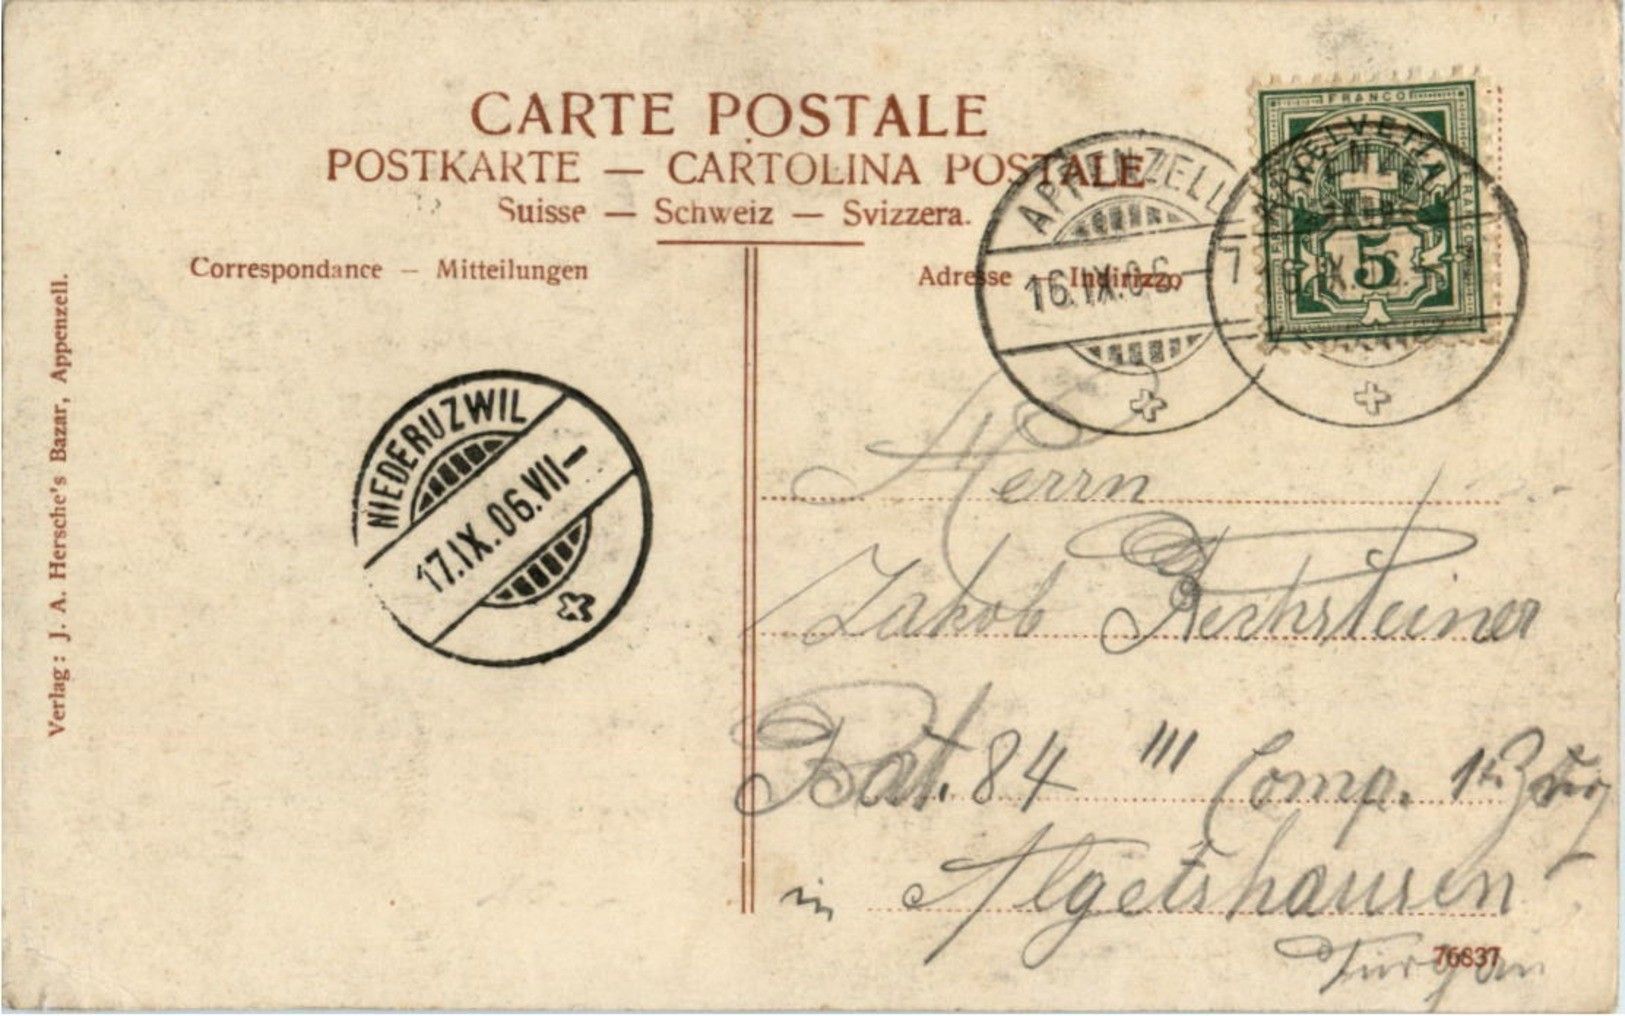 CARTE POSTALE
POSTKARTE — CARTOLINA POSTALE
Suisse — Schweiz — Svizzera.
Correspondance — Mitteilungen
Adresse — Indirizzo
FRANCO
HELVETIA
5
APPENZELL
16.IX.06.–7
NIEDERUZWIL
17.IX.06.VII–
Herrn
Jakob Rechsteiner
Bat. 84 III Comp. 1t. Zug
in Algetshausen
Turgau
76837
Verlag: J. A. Hersche's Bazar, Appenzell.